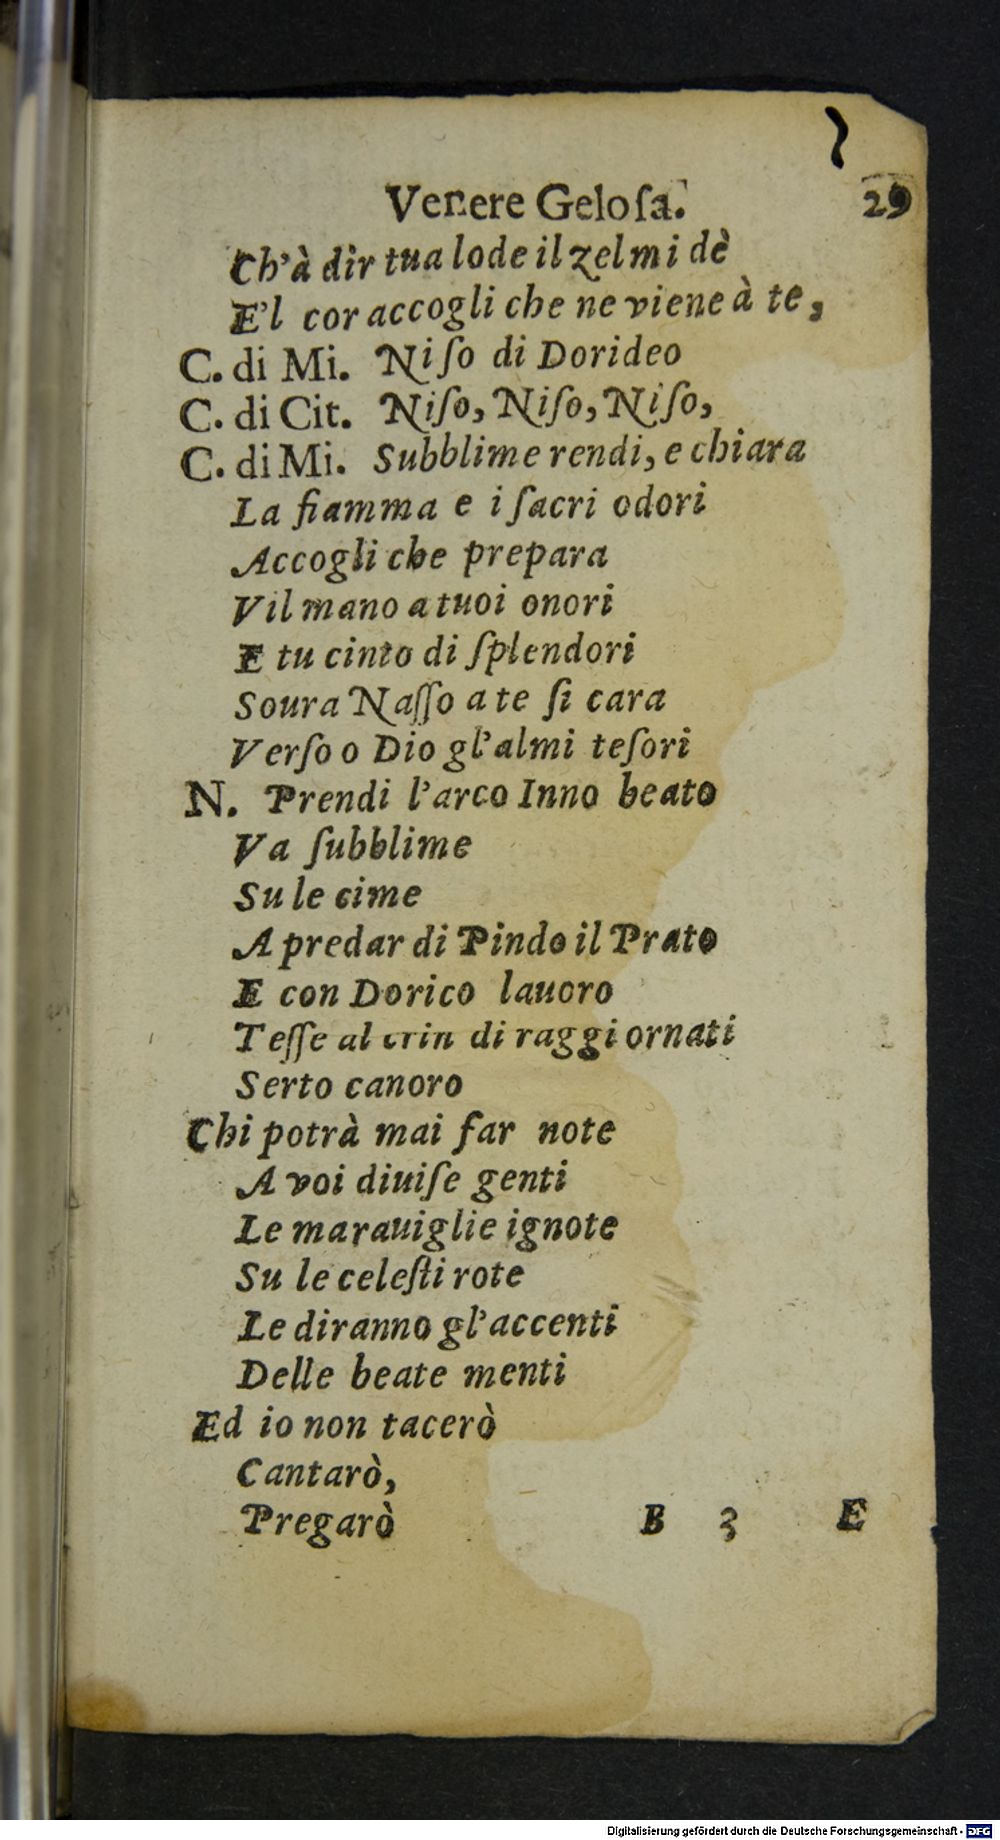 Venere Geloſa. 29
Ch'à dir tua lode il zel mi dè
E'l cor accogli che ne viene à te,
C. di Mi. Niſo di Dorideo
C. di Cit. Niſo, Niſo, Niſo,
C. di Mi. Subblime rendi, e chiara
La fiamma e i ſacri odori
Accogli che prepara
Vil mano a tuoi onori
E tu cinto di ſplendori
Soura Naſſo a te ſi cara
Verſo o Dio gl'almi teſori
N. Prendi l'arco Inno beato
Va ſubblime
Su le cime
A predar di Pindo il Prato
E con Dorico lauoro
Teſſe al crin di raggi ornati
Serto canoro
Chi potrà mai far note
A voi diuiſe genti
Le marauiglie ignote
Su le celeſti rote
Le diranno gl'accenti
Delle beate menti
Ed io non tacerò
Cantarò,
Pregarò
B 3 E
Digitalisierung gefördert durch die Deutsche Forschungsgemeinschaft - DFG